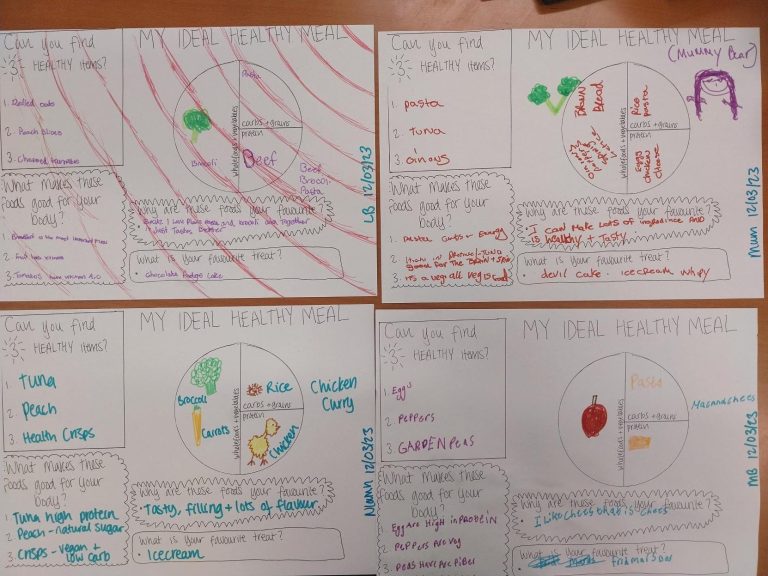 Can you find
3 HEALTHY items?
1. Rolled oats
2. Peach Slices
3. Chopped tomatoes
What makes these
foods good for your
body?
1. Breakfast is the most important meal
2. Fruit has vitamins
3. Tomatos have vitamin A,C
MY IDEAL HEALTHY MEAL
Pasta
carbs + grains
protein
wholefoods + vegetables
Brocoli
Beef
Beef
Brocoli
Pasta
Why are these foods your favourite?
I love Pasta and brocoli
Just Tastes Better
What is your favourite treat?
• Chocolate Fudge Cake
LB 12/03/23
Can you find
3 HEALTHY items?
1. pasta
2. Tuna
3. oinous
What makes these
foods good for your
body?
1. Pasta Carbs + Energy
2. good for The Brain +
3. it's a veg all veg is Good
MY IDEAL HEALTHY MEAL
(Mummy Bear)
Brown
Bread
Rice
pasta
carbs + grains
protein
wholefoods + vegetables
Eggs
chicken
cheese
Why are these foods your favourite?
I can Make Lots of ingredince and
is healthy + Tasty
What is your favourite treat?
• devil cake. icecream whipy
Mum 12/03/23
Can you find
3 HEALTHY items?
1. Tuna
2. Peach
3. Health Crisps
What makes these
foods good for your
body?
1. Tuna high protein
2. Peach - natural sugar
3. Crisps - vegan +
low carb
MY IDEAL HEALTHY MEAL
Broccoli
Carrots
Rice
carbs + grains
protein
wholefoods + vegetables
Chicken
Chicken
Curry
Why are these foods your favourite?
• Tasty, filling + lots of flavour
What is your favourite treat?
• Icecream
12/03/23
Can you find
3 HEALTHY items?
1. Eggs
2. PePPers
3. GARDEN Peas
What makes these
foods good for your
body?
1. Egg are High in PROtEIN
2. PePPers are veg
3. Peas Have are Fiber
MY IDEAL HEALTHY MEAL
Pasta
carbs + grains
protein
wholefoods + vegetables
Macandchees
Why are these foods your favourite?
• I Like chees
What is your favourite treat?
MB 12/03/23